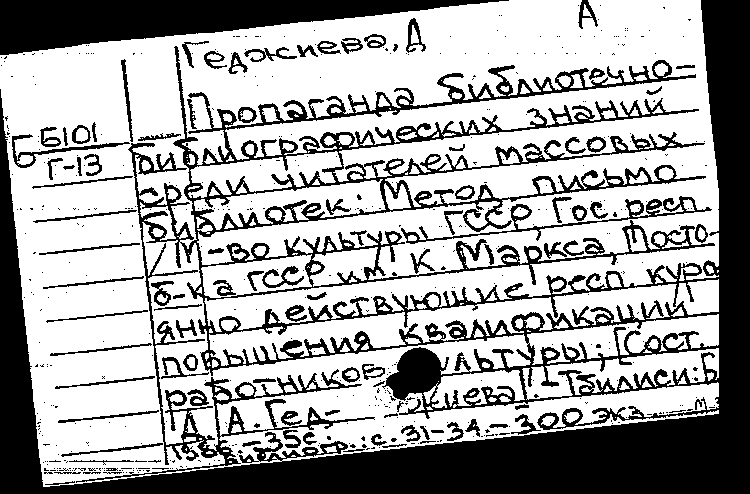 А
Геджиева, Д
Пропаганда библиотечно-
Б Б101
Г-13
библиографических знаний
среди читателей массовых
библиотек: Метод. письмо
/ М-во культуры ГССР, Гос. респ.
б-ка ГССР им. К. Маркса, Посто-
янно действующие респ. курсы
повышения квалификации
работников культуры; [Сост.
Д. А. Гед- жиева]. - Тбилиси: Б
- 35с.
Библиогр.: с. 31-34. - 300 экз